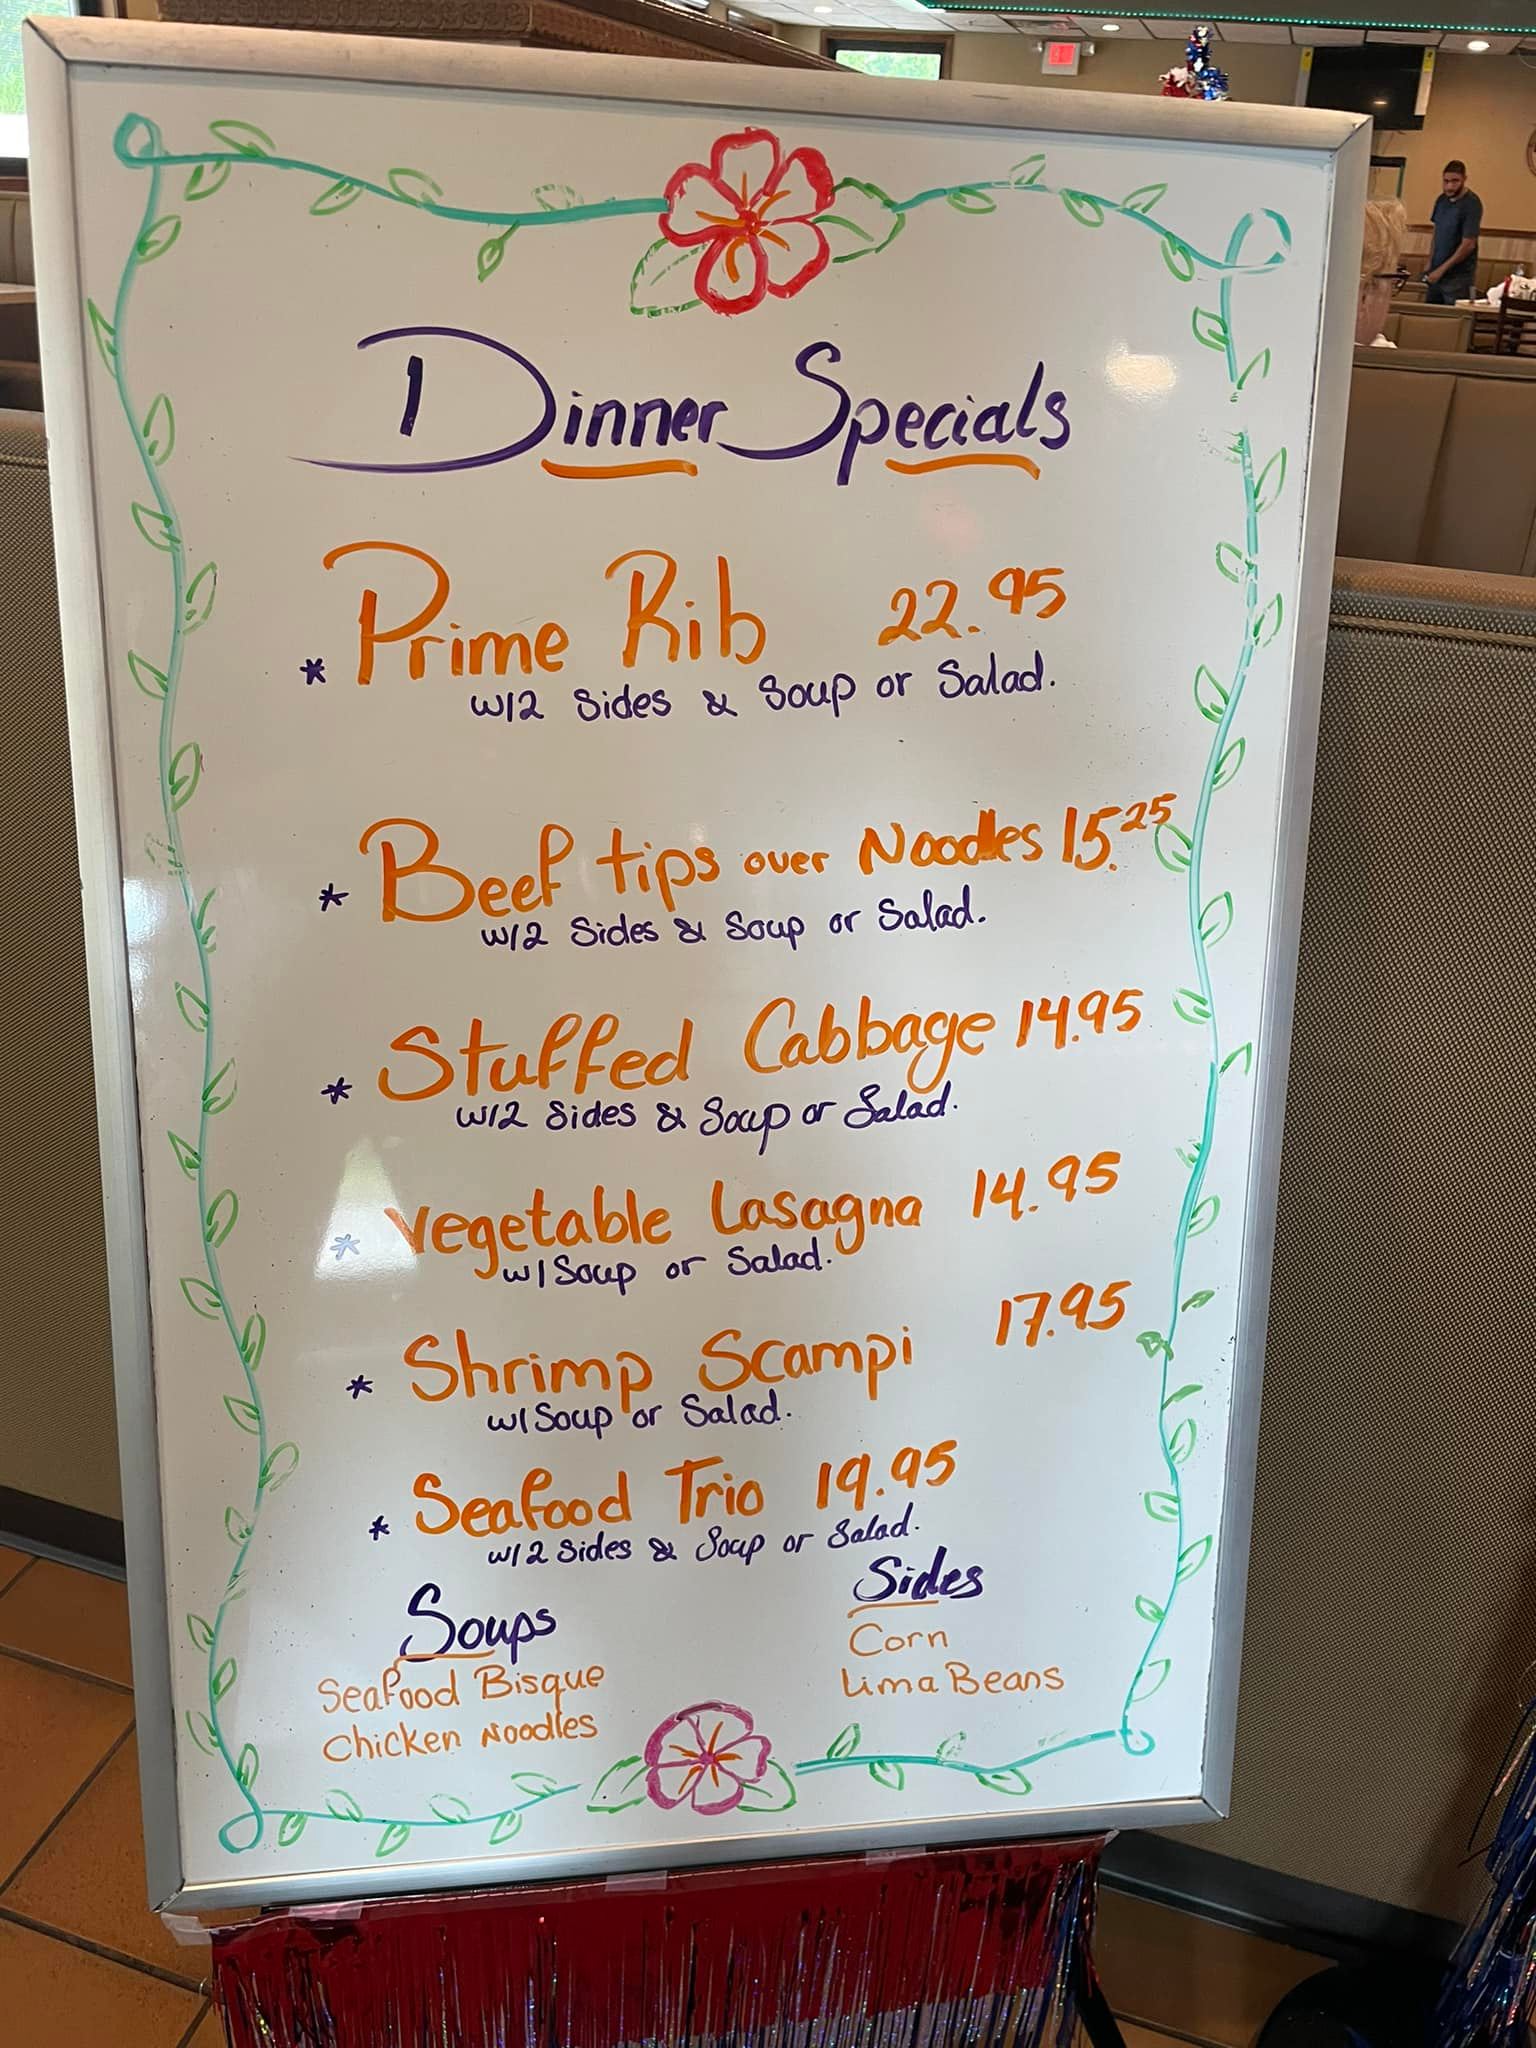 Dinner Specials
* Prime Rib 22.95
w/2 Sides & Soup or Salad.
* Beef tips over Noodles 15.25
w/2 Sides & Soup or Salad.
* Stuffed Cabbage 14.95
w/2 Sides & Soup or Salad.
* Vegetable Lasagna 14.95
w/ Soup or Salad.
* Shrimp Scampi 17.95
w/ Soup or Salad.
* Seafood Trio 19.95
w/2 Sides & Soup or Salad.
Soups
Seafood Bisque
Chicken Noodles
Sides
Corn
Lima Beans